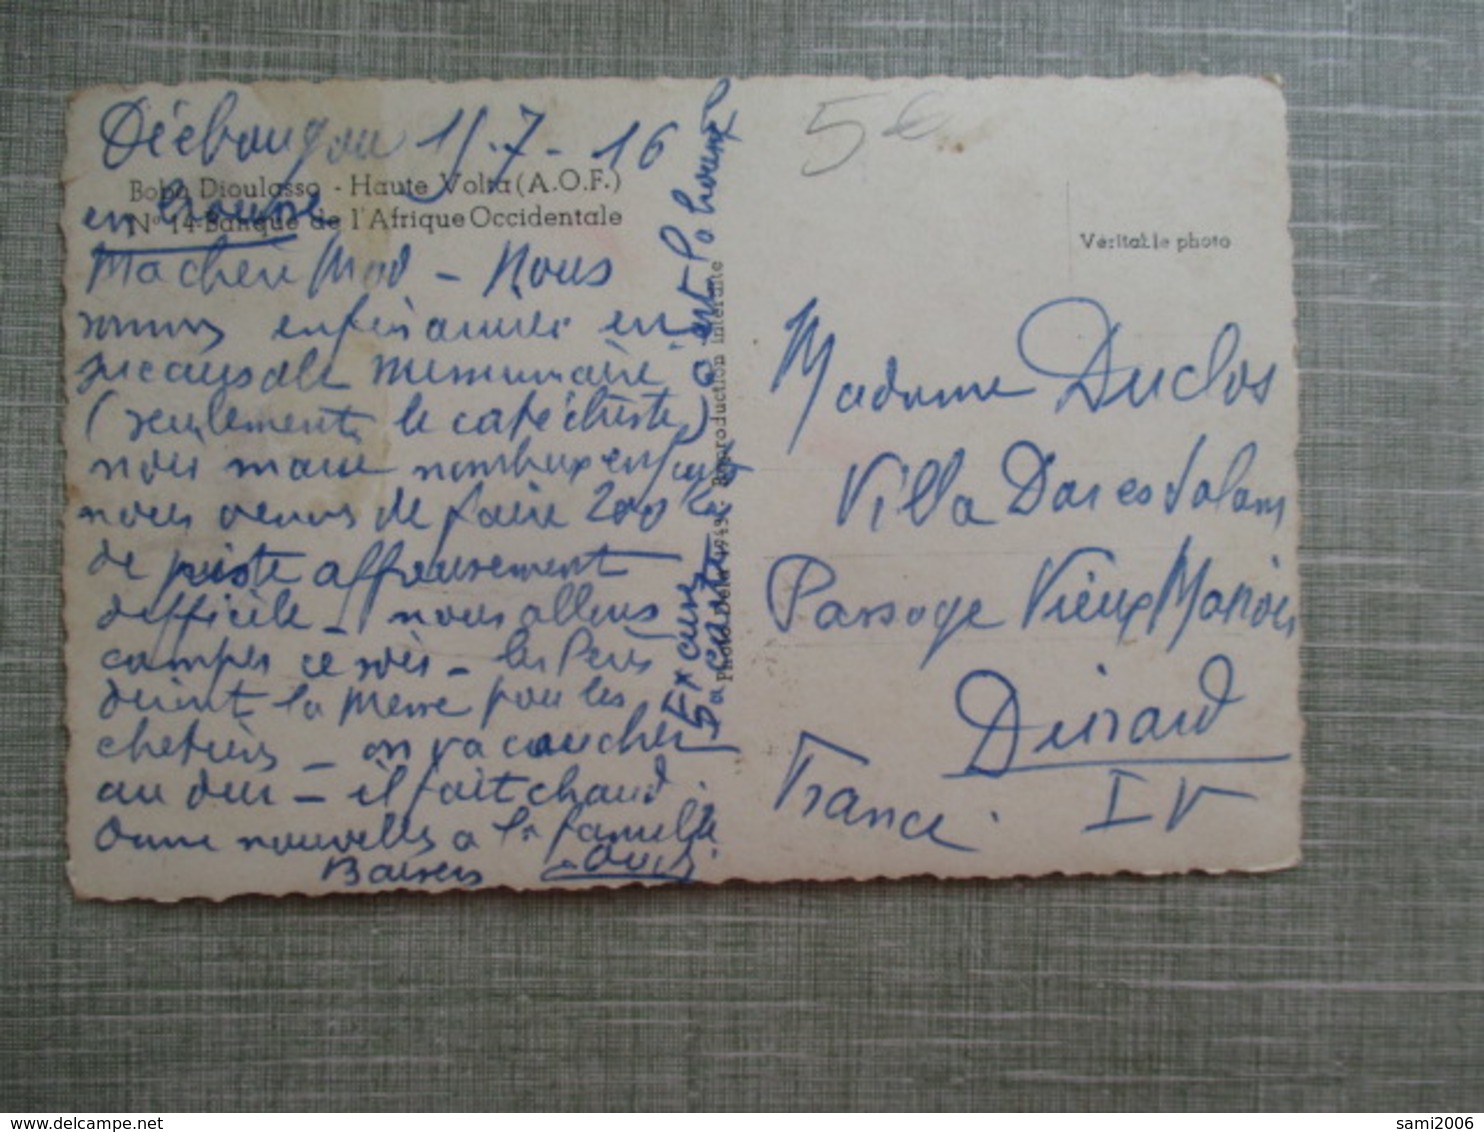 Diébougou 15.7-16
Bobo Dioulasso - Haute Volta (A.O.F.)
en brousse
N° 14-Banque de l'Afrique Occidentale
Ma chère Mad - Nous
sommes enfin arrivés en
succursale missionnaire
(seulement le catéchiste)
nombreux enfants
nous venons de faire 200
de piste affreusement
difficile - nous allons
camper ce soir - les Pères
disent la Messe pour les
- on va coucher
au dur - il fait chaud
Donne nouvelles a la famille
Baisers Louis
Excuse la carte
Photo Déla 1949 - Reproduction interdite
5€
Véritable photo
Madame Duclos
Villa Dar es Salam
Passage Vieux Manoir
Dinard
France. I V
sami2006